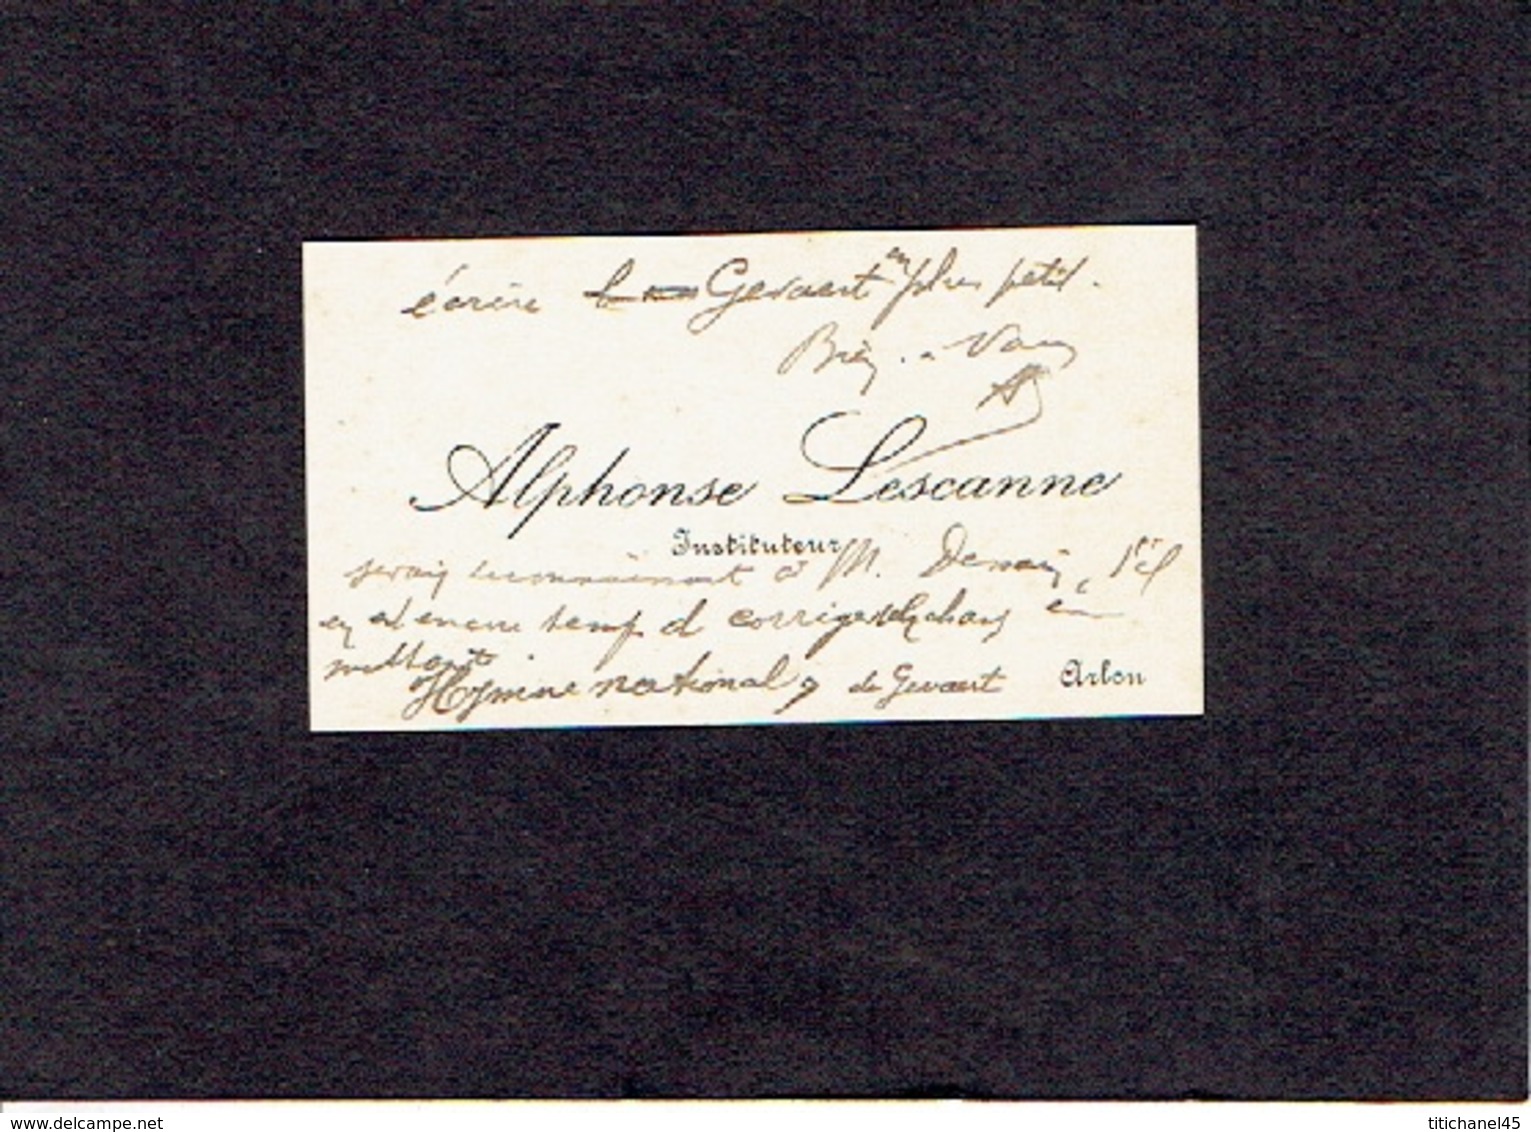 écrire Gevaert en plus petit.
Bien à Vous
Alphonse Lescanne
Instituteur
serais reconnaissant à M. s'il
en est encore temps de corriger en
mettant
Hymne national, de Gevaert
Arlon
delcampe.net
titichanel45